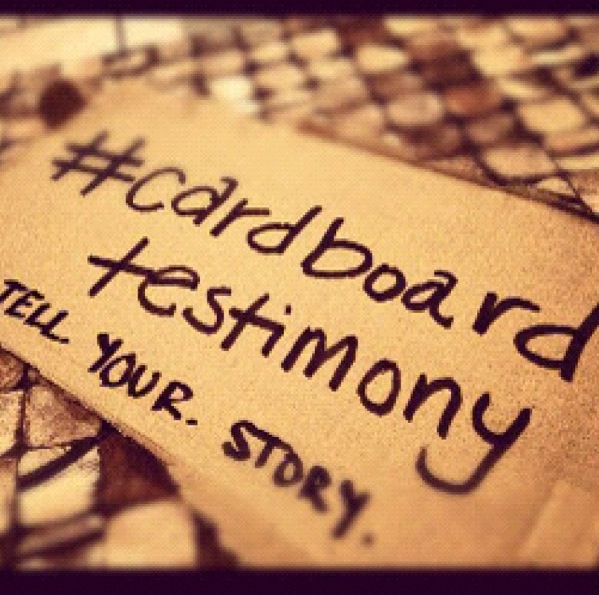 #cardboard
testimony
TELL. YOUR. STORY.